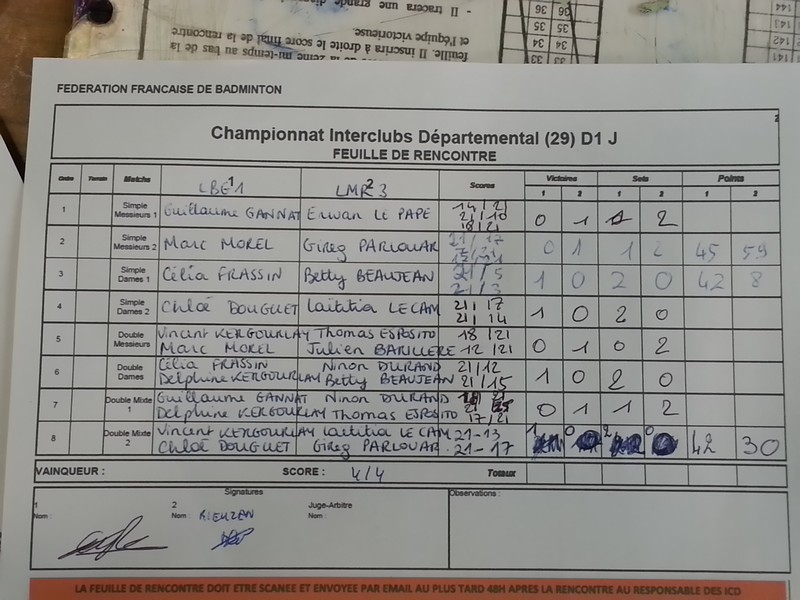 - Il tracera une grande
et l'équipe victorieuse.
feuille. Il inscrira à droite le score final de la rencontre
mi-temps au bas de la
36
35
34
33
144
143
142
141
FEDERATION FRANCAISE DE BADMINTON
2
Championnat Interclubs Départemental (29) D1 J
FEUILLE DE RENCONTRE
Ordre Terrain Matchs LBG1 1 LMR 3 2 Scores Victoires Sets Points
1 2 1 2 1 2
1 Simple Messieurs 1 Guillaume GANNAT Erwan LE PAPE 14/21 21/10 18/21 0 1 1 2
2 Simple Messieurs 2 Marc MOREL Gireg PARLOUAR 21/17 0 1 1 2 45 59
3 Simple Dames 1 Célia FRASSIN Betty BEAUJEAN 21/5 21/3 1 0 2 0 42 8
4 Simple Dames 2 Chloé DOUGUET Laëtitia LE CAM 21/17 21/14 1 0 2 0
5 Double Messieurs Vincent KERGOURLAY Thomas ESPOSITO 18/21
Marc MOREL Julien BARILLERE 12/21 0 1 0 2
6 Double Dames Célia FRASSIN Ninon DURAND 21/12
Delphine KERGOURLAY Betty BEAUJEAN 21/15 1 0 2 0
7 Double Mixte 1 Guillaume GANNAT Ninon DURAND
Delphine KERGOURLAY Thomas ESPOSITO 17/21 0 1 1 2
8 Double Mixte 2 Vincent KERGOURLAY Laëtitia LE CAM 21-13 1 0 2 0
Chloé DOUGUET Gireg PARLOUAR 21-17 42 30
VAINQUEUR : SCORE : 4/4 Totaux
Signatures
1 2 Juge-Arbitre Observations :
Nom : Nom : RIEUZEN Nom :
LA FEUILLE DE RENCONTRE DOIT ETRE SCANEE ET ENVOYEE PAR EMAIL AU PLUS TARD 48H APRES LA RENCONTRE AU RESPONSABLE DES ICD